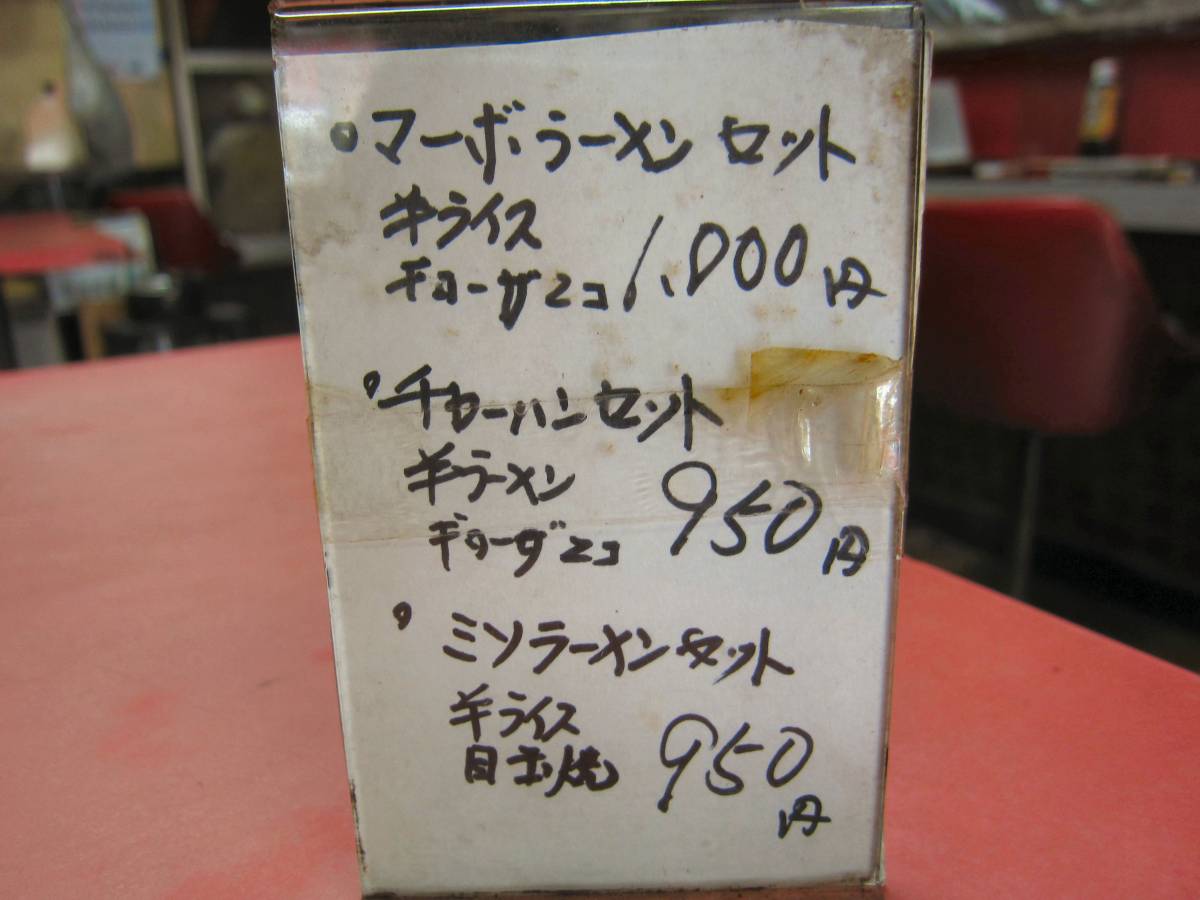 マーボーラーメンセット
半ライス
ギョーザ2コ 1.000円
チャーハンセット
半ラーメン
ギョーザ2コ 950円
ミソラーメンセット
半ライス
目玉焼 950円